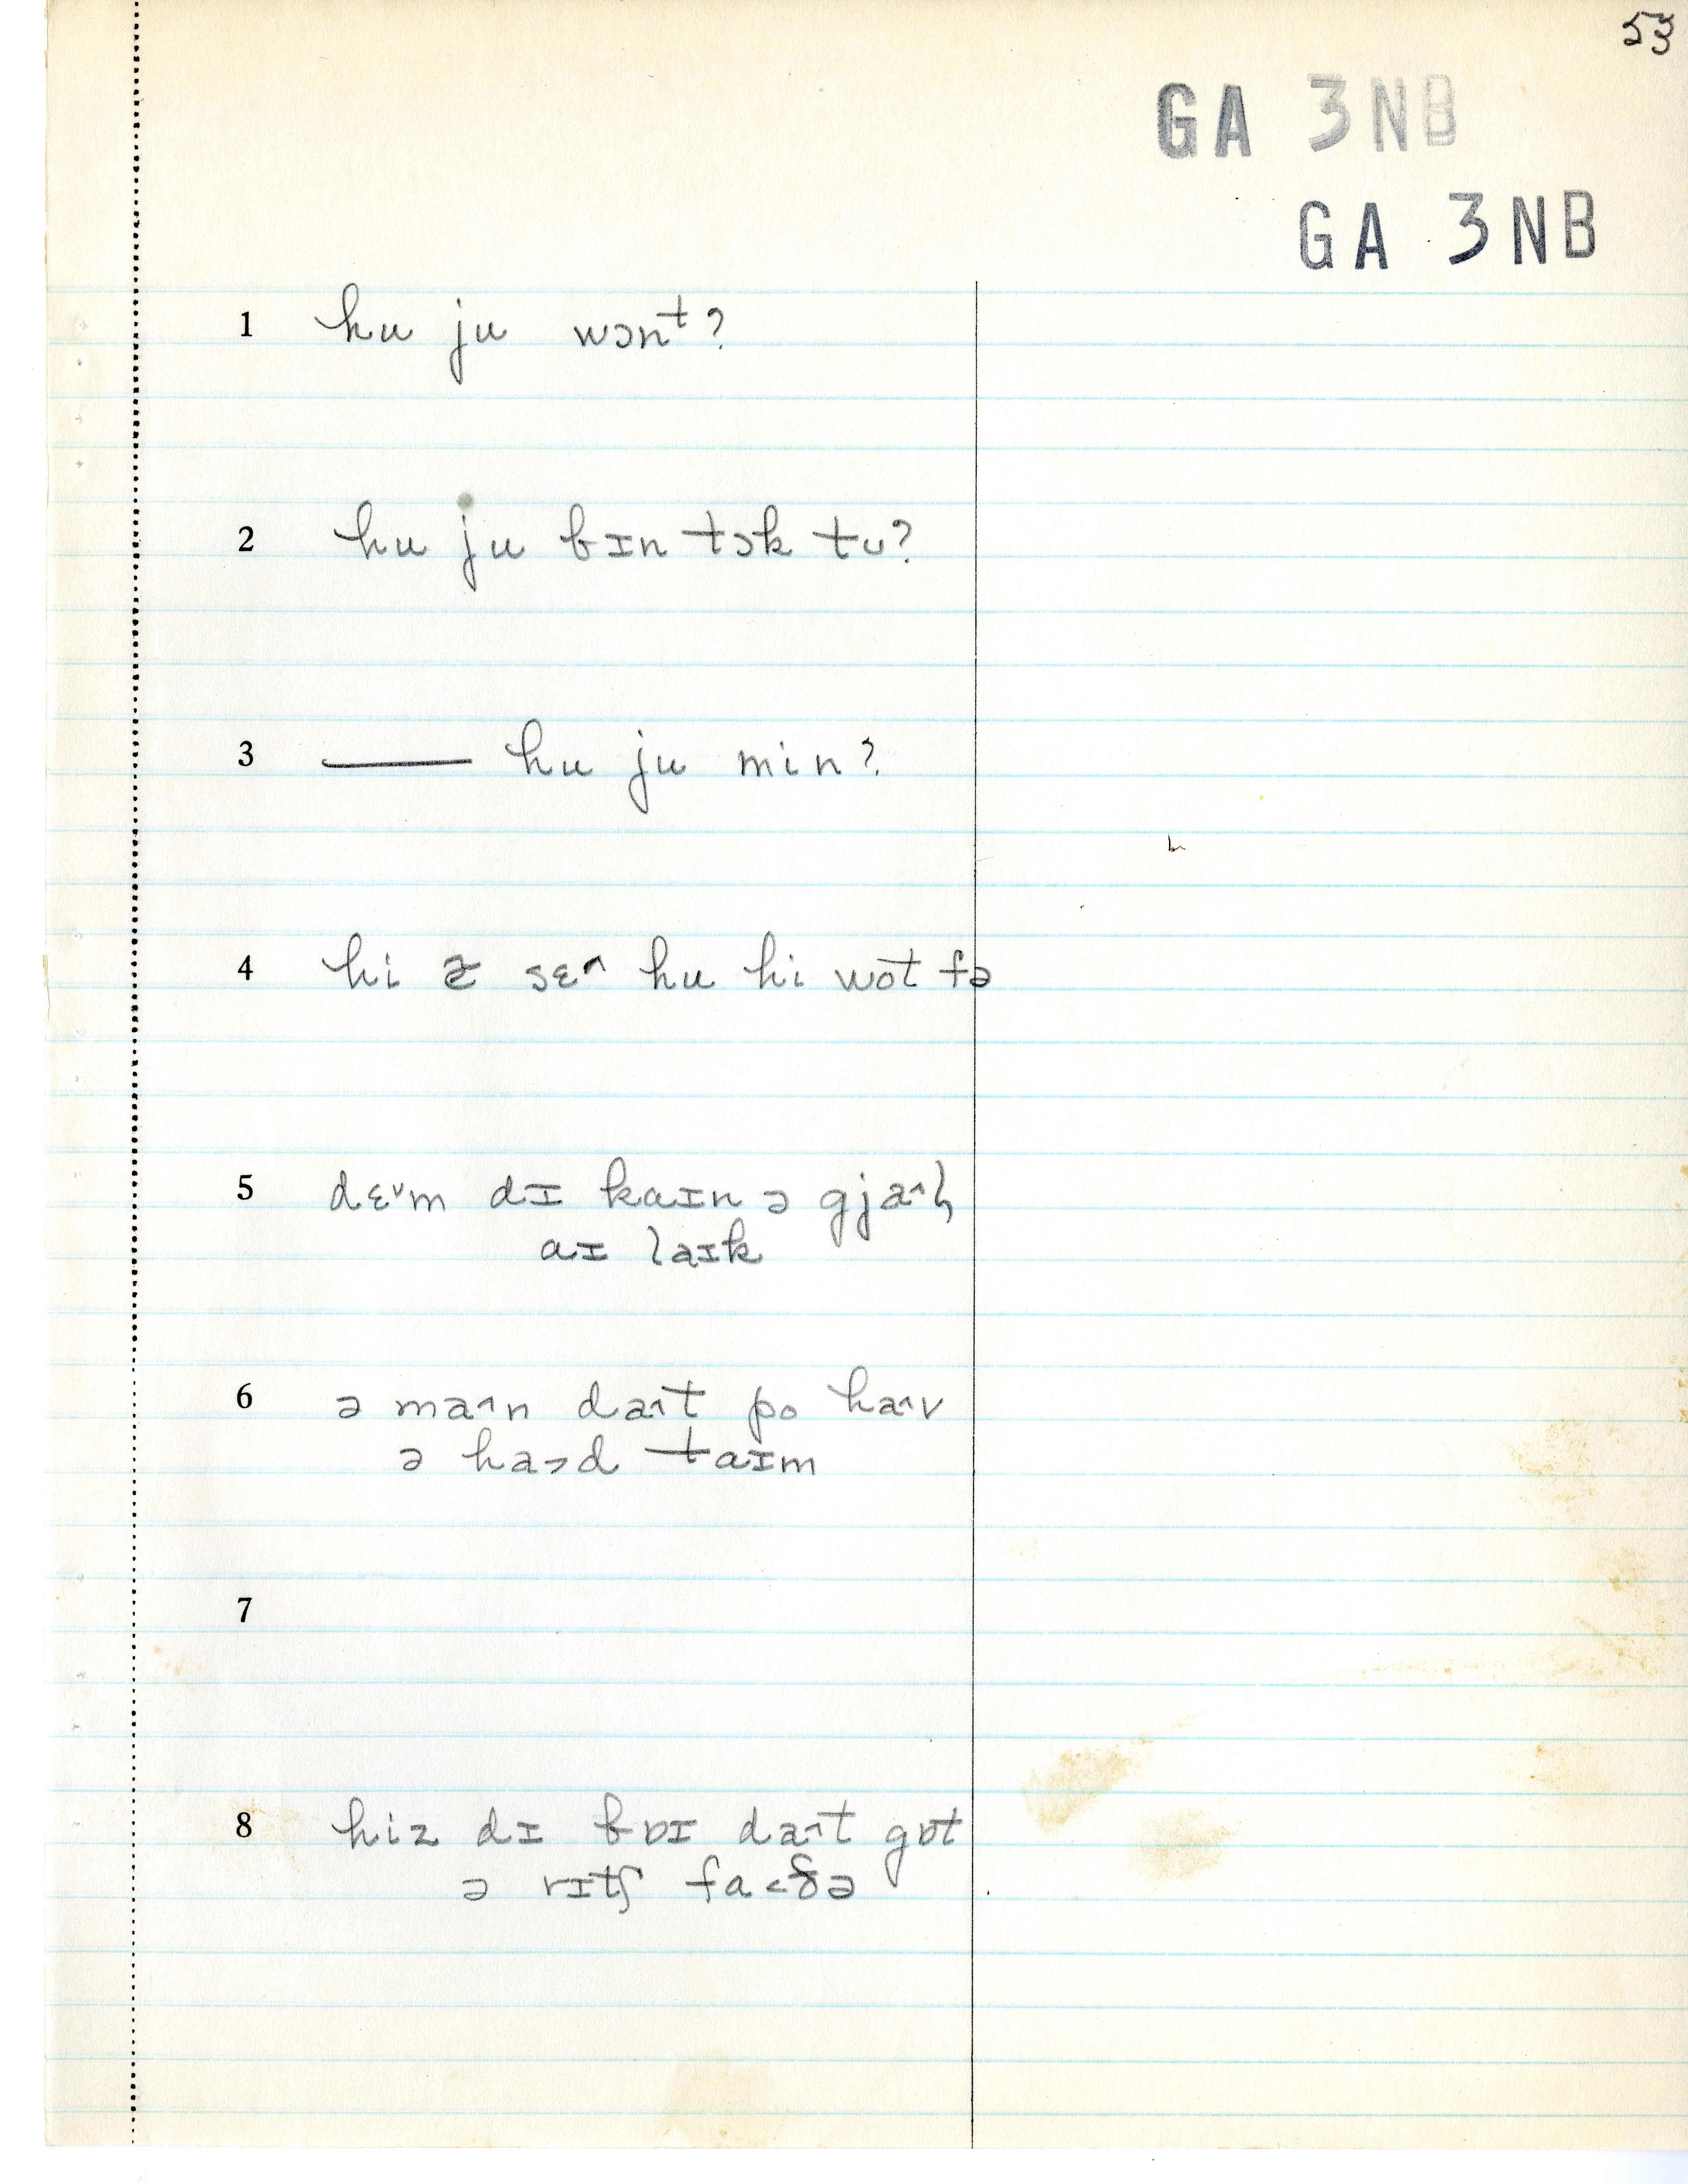 53
GA 3NB
GA 3NB
1 hu ju wɔnt?
2 hu ju bɪn tɔk tu?
3 —— hu ju min?
4 hi sɛ˄ hu hi wɒt fə
5 dɛ˅m dɪ kaɪn ə
aɪ laɪk
6 ə ma˄n da˄t po ha˄v
ə ha˃d taɪm
7
8 hiz dɪ bɒɪ da˄t gɒt
ə rɪtʃ fa˂ðə